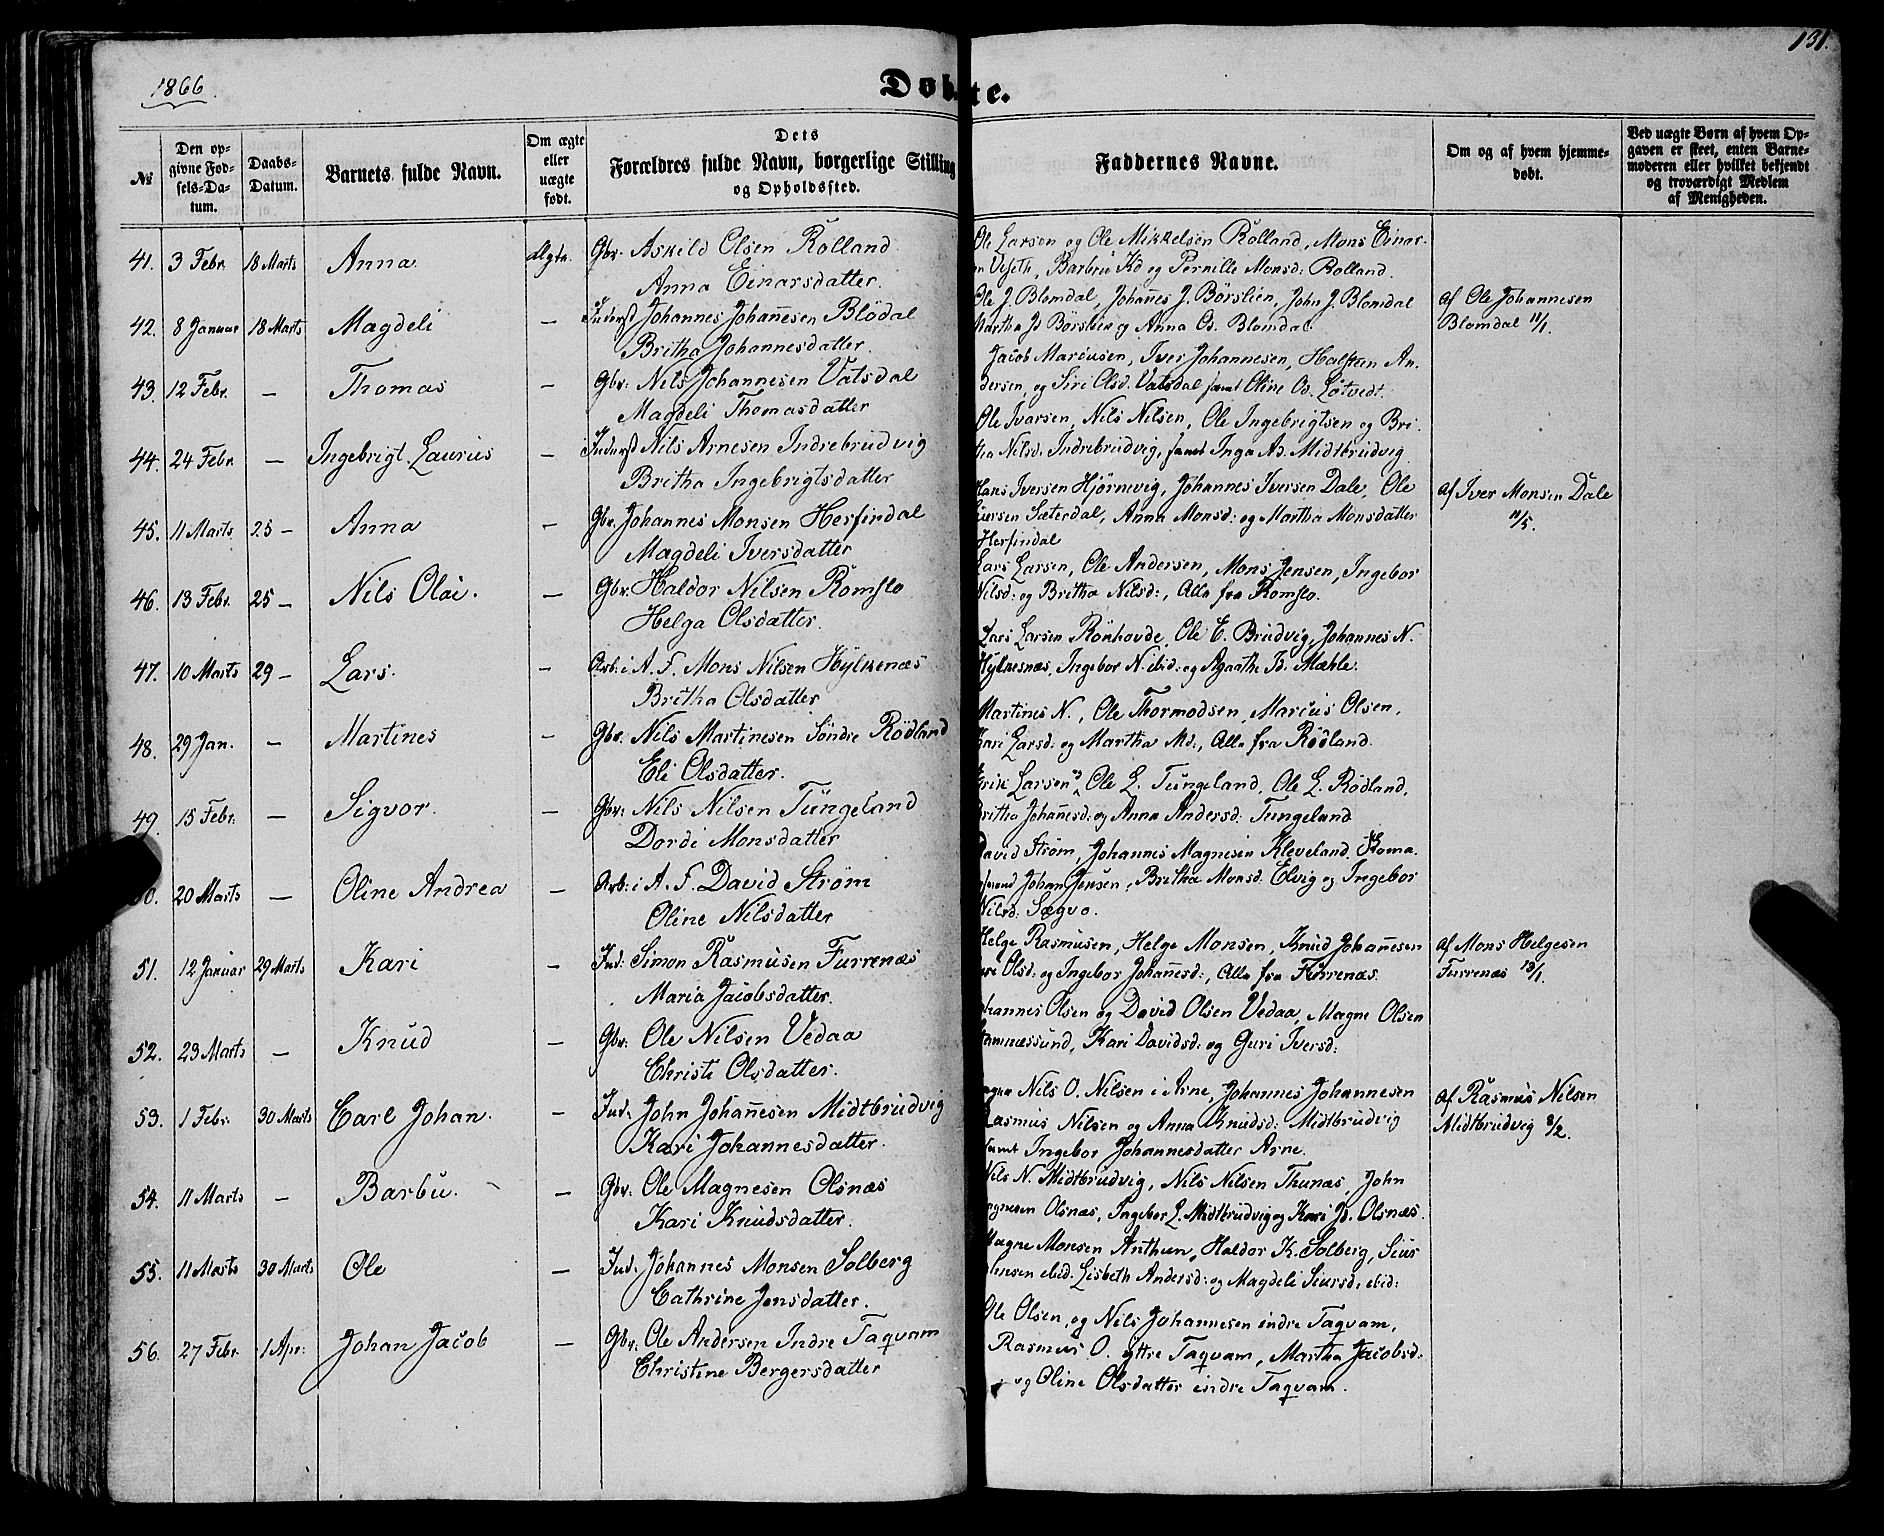 1866.
Døbte.
131.
No
Den opgivne Fødsels-Datum.
Daabs-Datum.
Barnets fulde Navn.
Om ægte eller uægte født.
Dets Forældres fulde Navn, borgerlige Stilling og Opholdssted.
Faddernes Navne.
Om og af hvem hjemmedøbt.
Ved uægte Børn af hvem Opgaven er skeet, enten Barnemoderen eller hvilket bekjendt og troværdigt Medlem af Menigheden.
41. 3 Febr. 18 Marts Anna Ægte. Gbr. Askild Olsen Rolland
Anna Einarsdatter.
Ole Larsen og Ole Mikkelsen Rolland, Mons Einar-
Barbru Kd og Pernille Monsd: Rolland.
42. 8 Januar 18 Marts Magdeli — Inderst Johannes Johan̄esen Blödal
Britha Johannesdatter.
Ole J. Blomdal, Johan̄es J. Börslien, John J. Blomdal
Martha Jd Börslien og Anna Od. Blomdal.
Af Ole Johannesen
Blomdal 11/1.
43. 12 Febr. — Thomas — Gbr: Nils Johannesen Vatsdal
Magdeli Thomasdatter
Jacob Marcusen, Iver Johannesen, Halsteen An-
dersen, og Siri Olsd. Vatsdal samt Oline Od. Løtvedt.
44. 24 Febr. — Ingebrigt Laurius — Inderst Nils Arnesen Indrebrudvig
Britha Ingebrigtsdatter
Ole Ivarsen, Nils Nilsen, Ole Ingebrigtsen og Bri-
tha Nilsd. Indrebrudvig, samt Inga Ad. Midtbrudvig
45. 11 Marts 25 — Anna — Gbr. Johannes Monsen Herfindal
Magdeli Iversdatter
Hans Iversen Hjørnevig, Johannes Iversen Dale, Ole
Iversen Sæterdal, Anna Monsd: og Martha Monsdatter
Herfindal
Af Iver Monsen Dale
11/5.
46. 13 Febr. 25 — Nils Olai. — Gbr. Haldor Nilsen Romslo
Helga Olsdatter.
Lars Larsen, Ole Andersen, Mons Jensen, Ingebor
Nilsd: og Britha Nilsd:, Alle fra Romslo.
47. 10 Marts 29 — Lars. — Arb: i A. F. Mons Nilsen Hylkenæs
Britha Olsdatter
Lars Larsen Rönhovde, Ole E. Brudvig, Johannes N.
Hylkesnæs, Ingebor N. ibid: og Agaathe Id. Mæhle.
48. 29 Jan. — Martines — Gbr. Nils Martinesen Söndre Rödland
Eli Olsdatter.
Martines N., Ole Thormodsen, Marcus Olsen,
Kari Larsd: og Martha Md:, Alle fra Rödland.
49. 15 Febr: — Sigvor. — Gbr: Nils Nilsen Tüngeland
Dordi Monsdatter
Erik Larsen, Ole L. Tüngeland, Ole L. Rödland,
Britha Johan̄esd: og Anna Andersd: Tungeland
50. 20 Marts — Oline Andrea — Arb: i A. F. David Ström
Oline Nilsdatter
David Ström, Johannes Magnesen Kleveland, Skoma-
Johan Jensen, Britha Monsd. Elvig og Ingebor
Nilsd: Sægvo.
51. 12 Januar 29 Marts Kari — Ind: Simon Rasmusen Furrenæs
Maria Jacobsdatter.
Helge Rasmusen, Helge Monsen, Knud Johan̄esen
Olsd: og Ingebor Johan̄esd:, Alle fra Fürrenæs.
Af Mons Helgesen
Furrenæs 13/1.
52. 23 Marts — Knud — Gbr: Ole Nilsen Vedaa
Christi Olsdatter.
Johannes Olsen og David Olsen Vedaa, Magne Olsen
Hamnæssund, Kari Davidsd: og Guri Iversd:
53. 1 Febr. 30 Marts Carl Johan. — Ind. John Johan̄esen Midtbrudvig
Kari Johannesdatter.
Nils O. Nilsen i Arne, Johannes Johannesen
Rasmus Nilsen og Anna Knudsd: Midtbrudvig
samt Ingebor Johannesdatter Arne.
Af Rasmus Nilsen
Midtbrudvig 8/2.
54. 11 Marts — Barbu. — Gbr: Ole Magnesen Olsnæs
Kari Knudsdatter.
Nils N. Midtbrudvig, Nils Nilsen Thunæs, John
Magnesen Olsnæs, Ingebor L. Midtbrudvig og Kari Jd. Olsnæs.
55. 11 Marts 30 Marts Ole — Ind. Johannes Monsen Solberg
Cathrine Jensdatter.
Magne Monsen Anthun, Haldor K. Solberg, Siur
ibid. Lisbeth Andersd: og Magdeli Siursd: ibid:
56. 27 Febr. 1 Apr: Johan Jacob — Gbr: Ole Andersen Indre Taqvam
Christine Bergersdatter
Ole Olsen, og Nils Johannesen indre Taqvam,
Rasmus O. yttre Taqvam, Martha Jacobsd:
og Oline Olsdatter indre Taqvam.